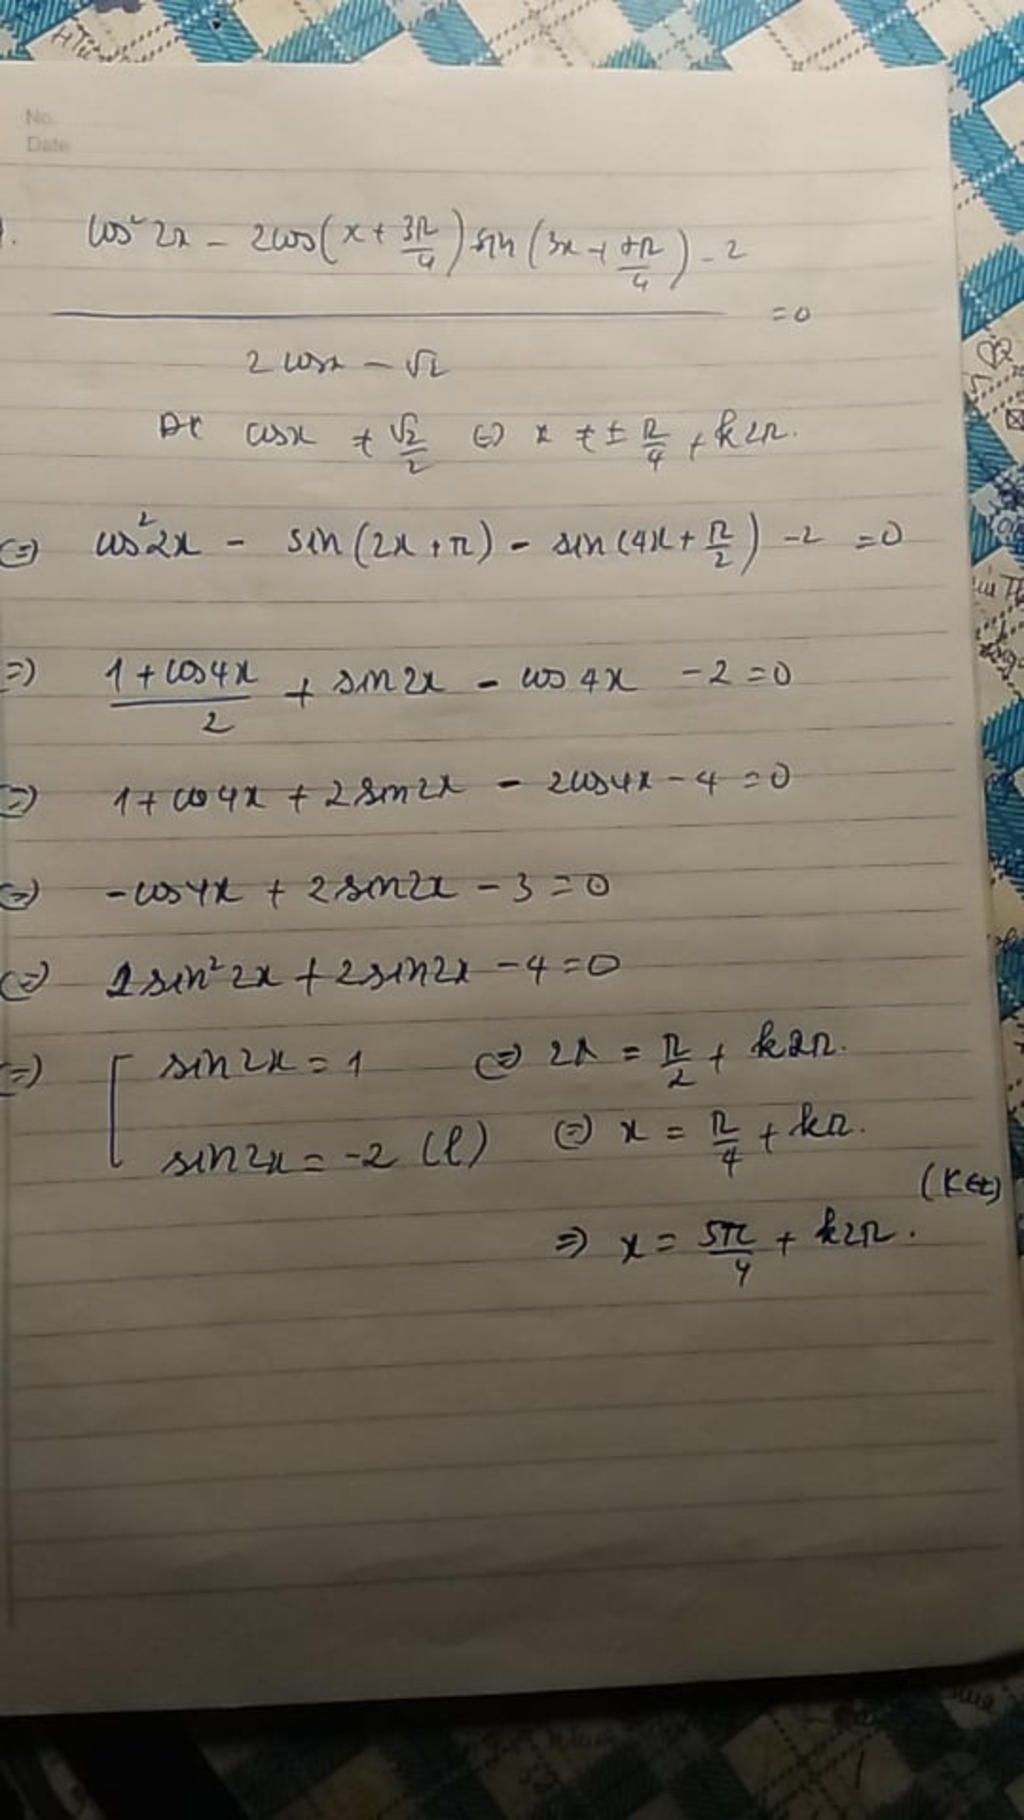 No.
Date
cos² 2x - 2cos(x + 3π/4) sin(3x + π/4) - 2
= 0
2 cosx - √2
ĐK cosx ≠ √2/2 (=) x ≠ ± π/4 + k2π.
(=) cos²2x - sin(2x + π) - sin(4x + π/2) - 2 = 0
(=) 1 + cos4x/2 + sin2x - cos 4x - 2 = 0
(=) 1 + cos4x + 2sin2x - 2cos4x - 4 = 0
(=) -cos4x + 2sin2x - 3 = 0
(=) 2sin²2x + 2sin2x - 4 = 0
(=) [ sin2x = 1 (=) 2x = π/2 + k2π.
sin2x = -2 (l) (=) x = π/4 + kπ.
(K∈Z)
=> x = 5π/4 + k2π.